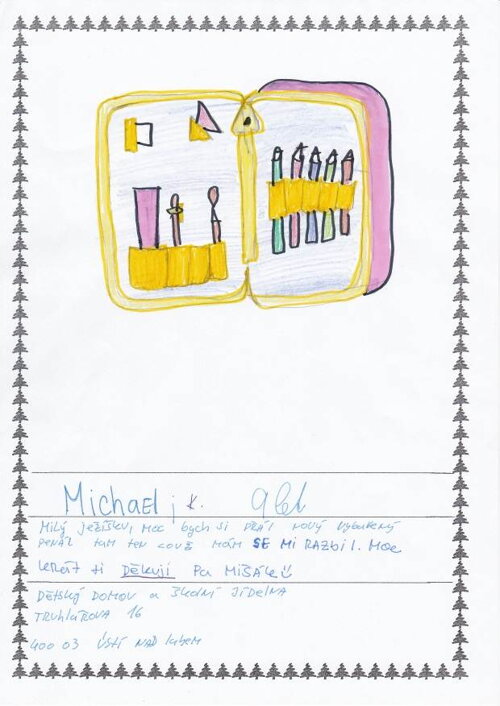 Michael j K. 9 let
Milý ježíšku, moc bych si přál nový vybavený
penál tam ten co už mám SE Mi RAZbil. Moc
krát ti DĚkuji Pa MišÁk
DĚtský DOMOV a školní JíDELNA
TRUhlářova 16
400 03 ÚSTÍ NAD labem